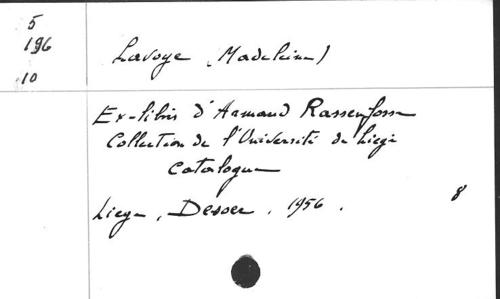 5
196
10
Lavoye (Madeleine)
Ex-libris d'Armand Rassenfosse
Collection de l'Université de Liège
Catalogue
Liège, Desoer. 1956.
8